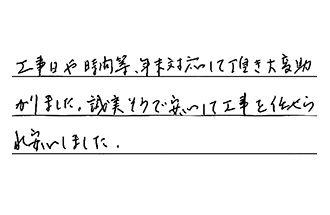 工事日や時間等、年末対応して頂き大変助
かりました。誠実そうで安心して工事を任せら
れ安心しました。